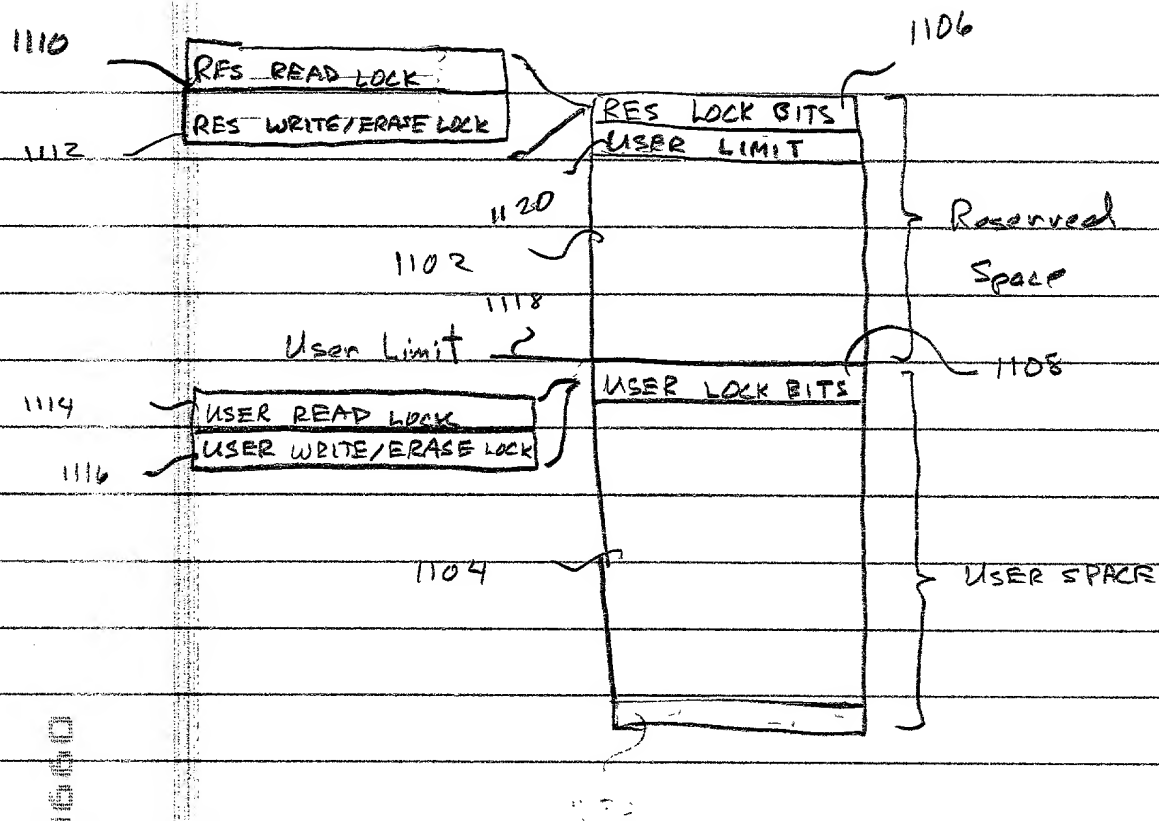 1106
1110
RES READ LOCK
RES WRITE/ERASE LOCK
1112
RES LOCK BITS
USER LIMIT
1120
1102
Reserved
Space
1118
User Limit
1108
USER LOCK BITS
1114
USER READ LOCK
USER WRITE/ERASE LOCK
1116
1104
USER SPACE